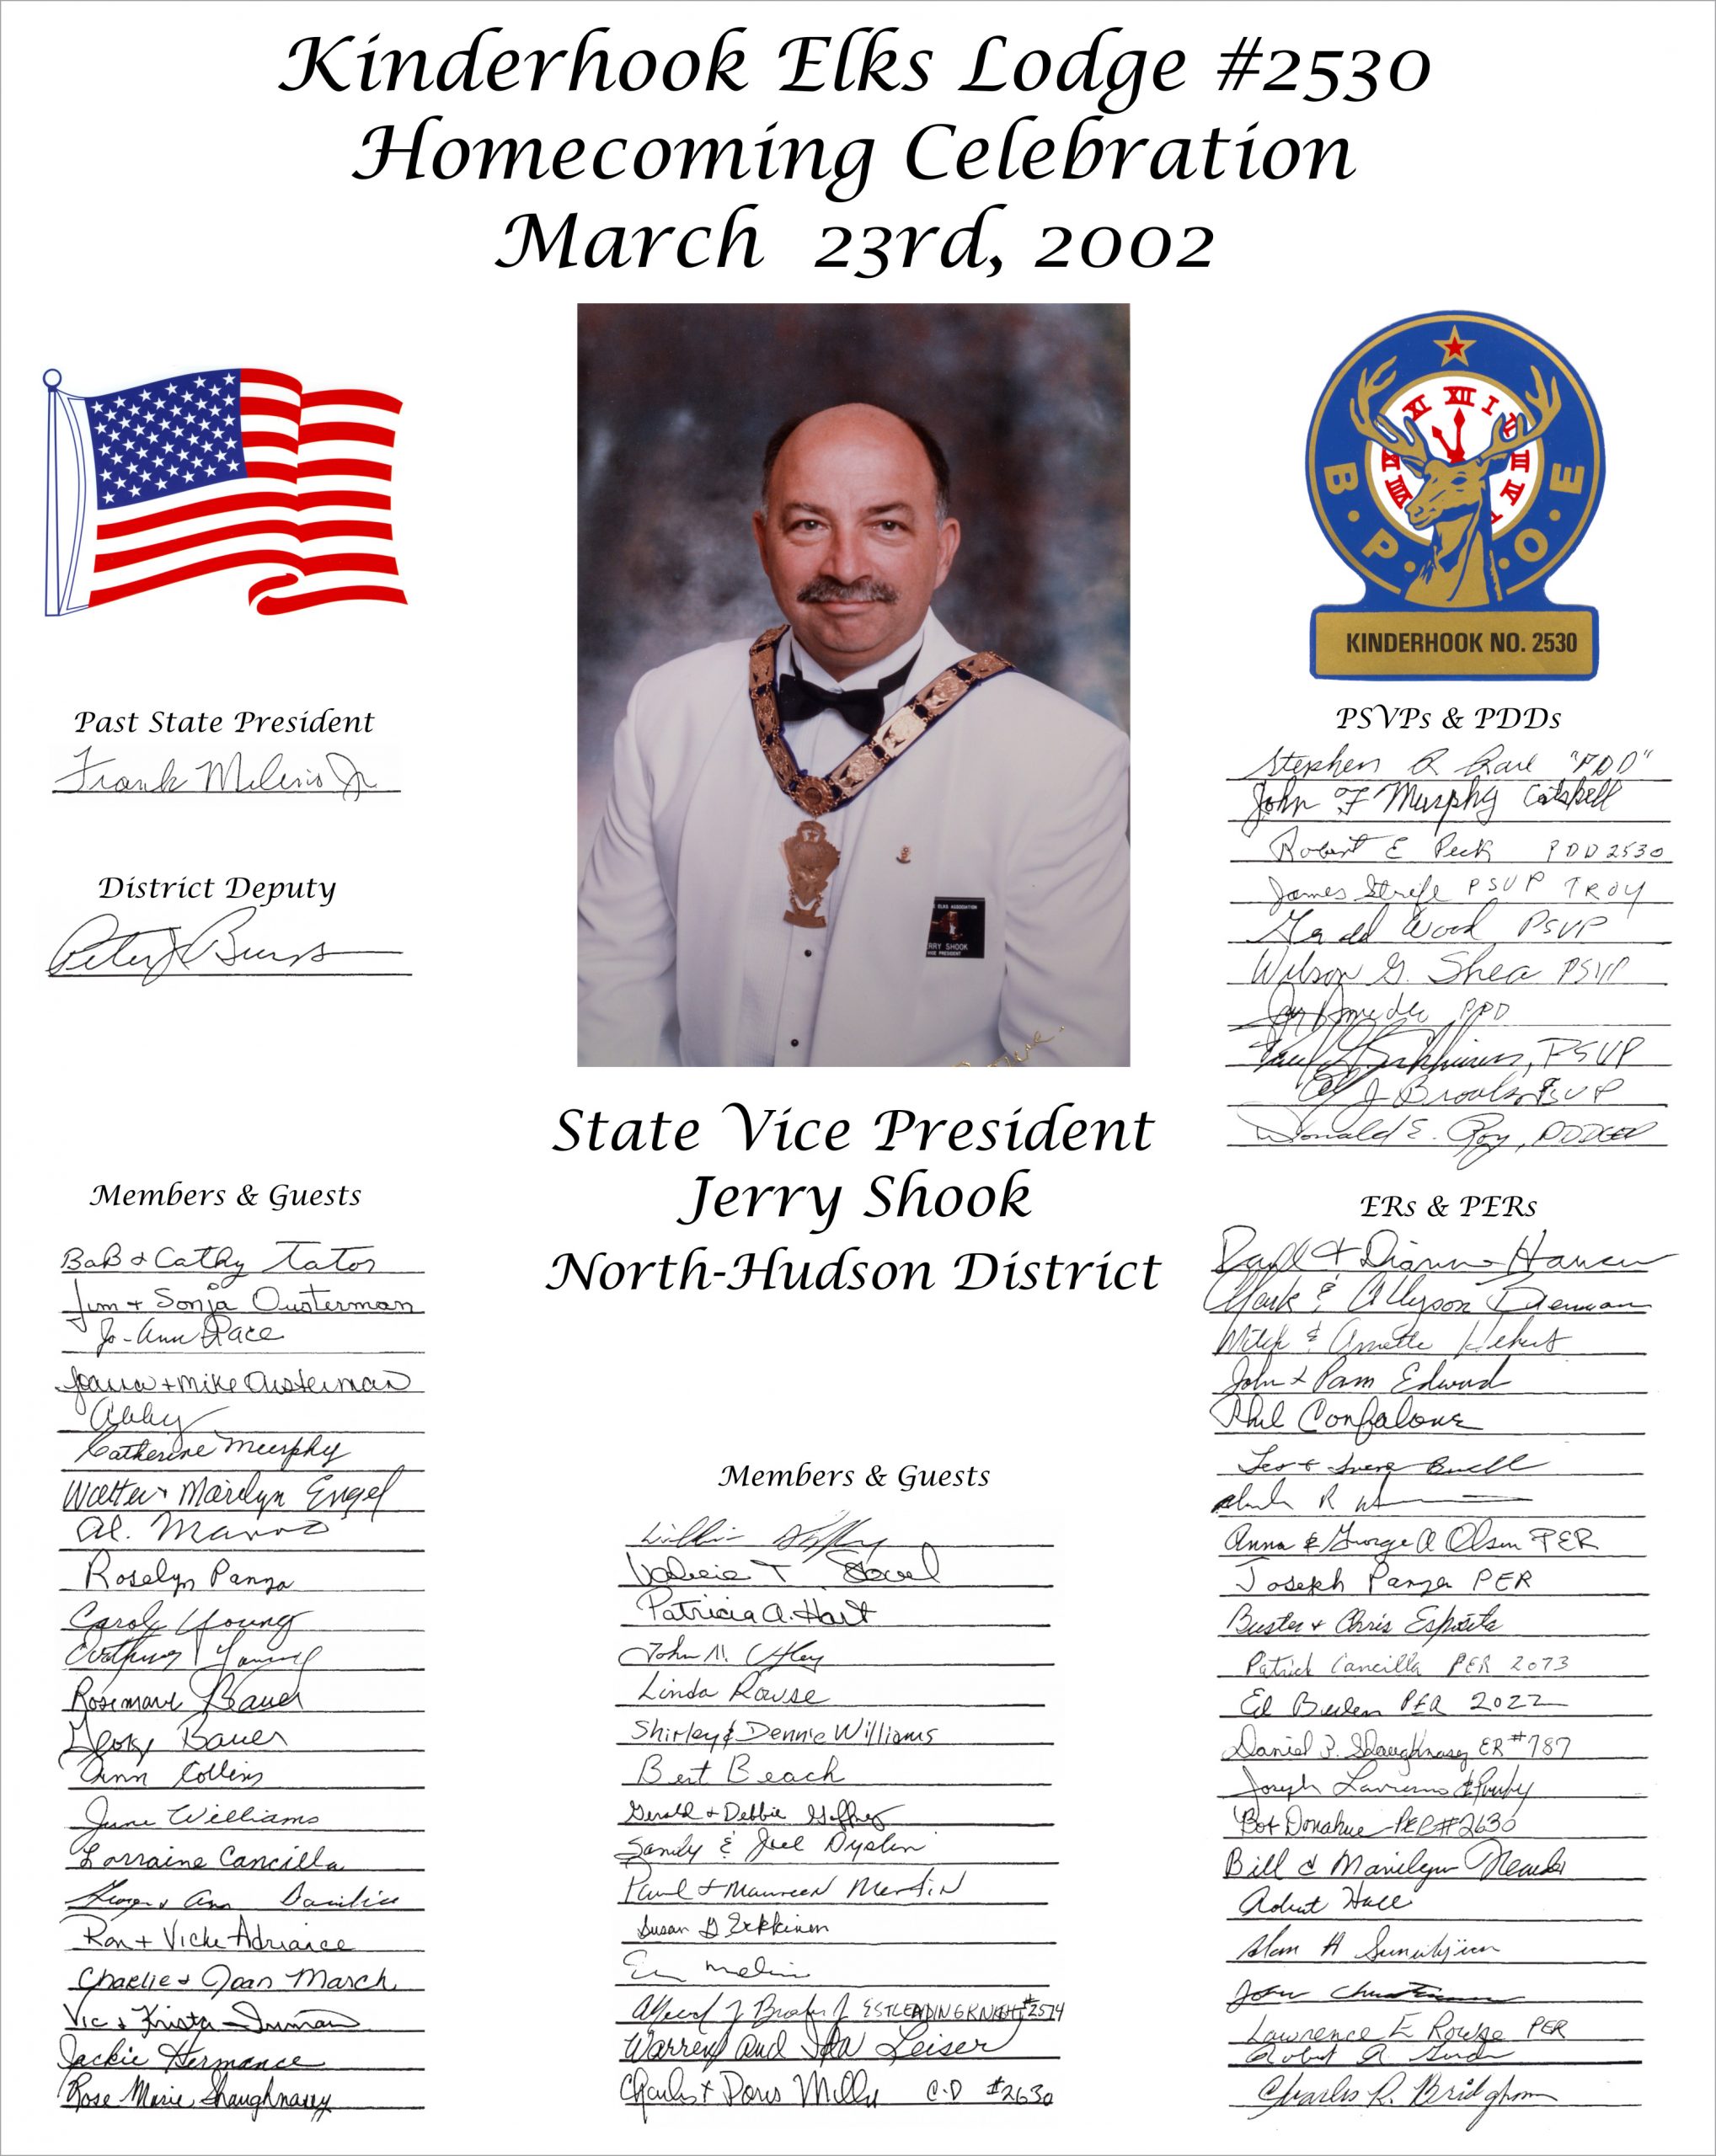 Kinderhook Elks Lodge #2530
Homecoming Celebration
March 23rd, 2002
XI XII I
III
VIII IV
B.P.O.E
KINDERHOOK NO. 2530
Past State President
Frank Melino Jr
District Deputy
Peter J Burns
ELKS ASSOCIATION
RRY SHOOK
VICE PRESIDENT
State Vice President
Jerry Shook
North-Hudson District
PSVPs & PDDs
Stephen R "PDD"
John F Murphy Catskill
Robert E Peck PDD 2530
James Strife PSVP TROY
Gerald Wood PSVP
Wilson G. Shea PSVP
PDD
PSVP
J Brooks PSVP
Donald E. Roy, PDDGER
Members & Guests
Bob & Cathy Tator
Jim + Sonja Ousterman
Jo-Ann Pace
Joanna + Mike Austerman
Abby
Catherine Murphy
Walter & Marilyn Engel
Al. Manno
Roselyn Panza
Carol Young
Anthony Young
Rosemarie Bauer
George Bauer
Ann Collins
June Williams
Lorraine Cancilla
George & Ann
Ron + Vicki Adriance
Charlie & Joan March
Vic & Krista Inman
Jackie Hermance
Rose Marie Shaughnasey
Members & Guests
Valerie T
Patricia A. Hart
John N. Utley
Linda Rouse
Shirley & Dennie Williams
Bert Beach
Gerald + Debbie Gaffney
Sandy & Joel Dyslin
Paul + Maureen Martin
Susan G Erkkinen
Melino
Alfred J ESTLEADINGKNIGHT #2574
Warren and Ida Leiser
Charles + Doris C.D #2630
ERs & PERs
& Diann Hansen
Mark & Allyson
Mitch & Annette
John & Pam Edward
Phil Confalone
Leo + Irene Buell
R
Anna & George A Olsen PER
Joseph Panza PER
Buster & Chris Esposito
Patrick Cancilla PER 2073
Ed PER 2022
Daniel P. Shaughnasey ER #787
Joseph & Family
Bob Donahue PER #2630
Bill & Marilyn
Robert Hall
Alan A
John
Lawrence E Rouse PER
Robert A
Charles R. Bridgham